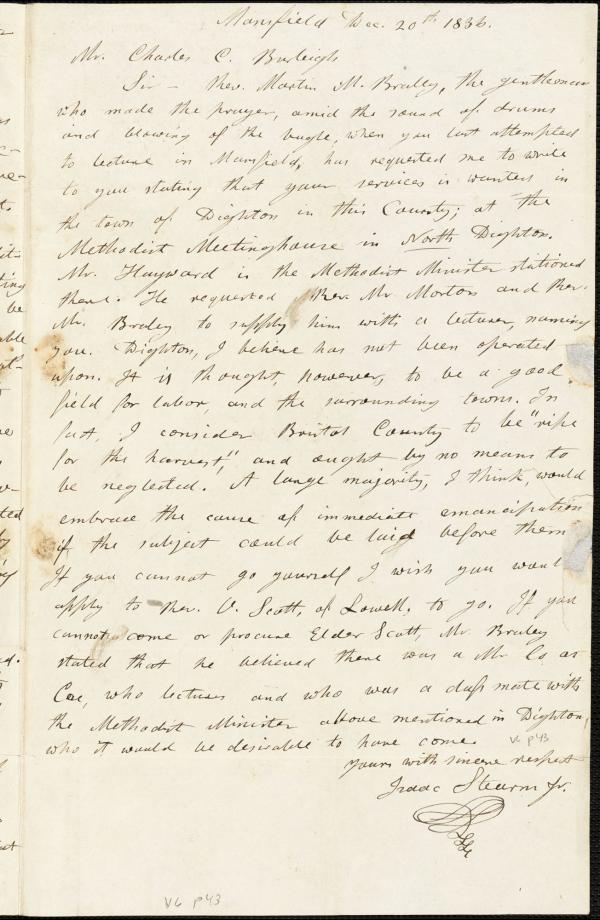 Mansfield Dec. 20th 1836.
Mr. Charles C. Burleigh
Sir - Rev. Martin M. Braley, the gentleman
who made the prayer, amid the sound of drums
and blowing of the bugle, when you last attempted
to lecture in Mansfield, has requested me to write
to you stating that your services is wanted in
the town of Dighton in this County; at the
Methodist Meetinghouse in North Dighton.
Mr. Hayward is the Methodist Minister stationed
there. He requested Rev. Mr. Morton and Rev.
Mr. Braley to supply him with a lecturer, naming
you. Dighton, I believe has not been operated
upon. It is thought, however, to be a good
field for labor, and the surrounding towns. In
fact, I consider Bristol County to be "ripe
for the harvest," and ought by no means to
be neglected. A large majority, I think, would
embrace the cause of immediate emancipation
if the subject could be laid before them
If you cannot go yourself I wish you would
apply to Rev. O. Scott, of Lowell, to go. If you
cannot come or procure Elder Scott, Mr. Braley
stated that he believed there was a Mr Co as
Coe, who lectures and who was a class mate with
the Methodist Minister above mentioned in Dighton,
who it would be desirable to have come.
V6 p43
Yours with sincere respect
Isaac Stearns Jr.
V6 p43